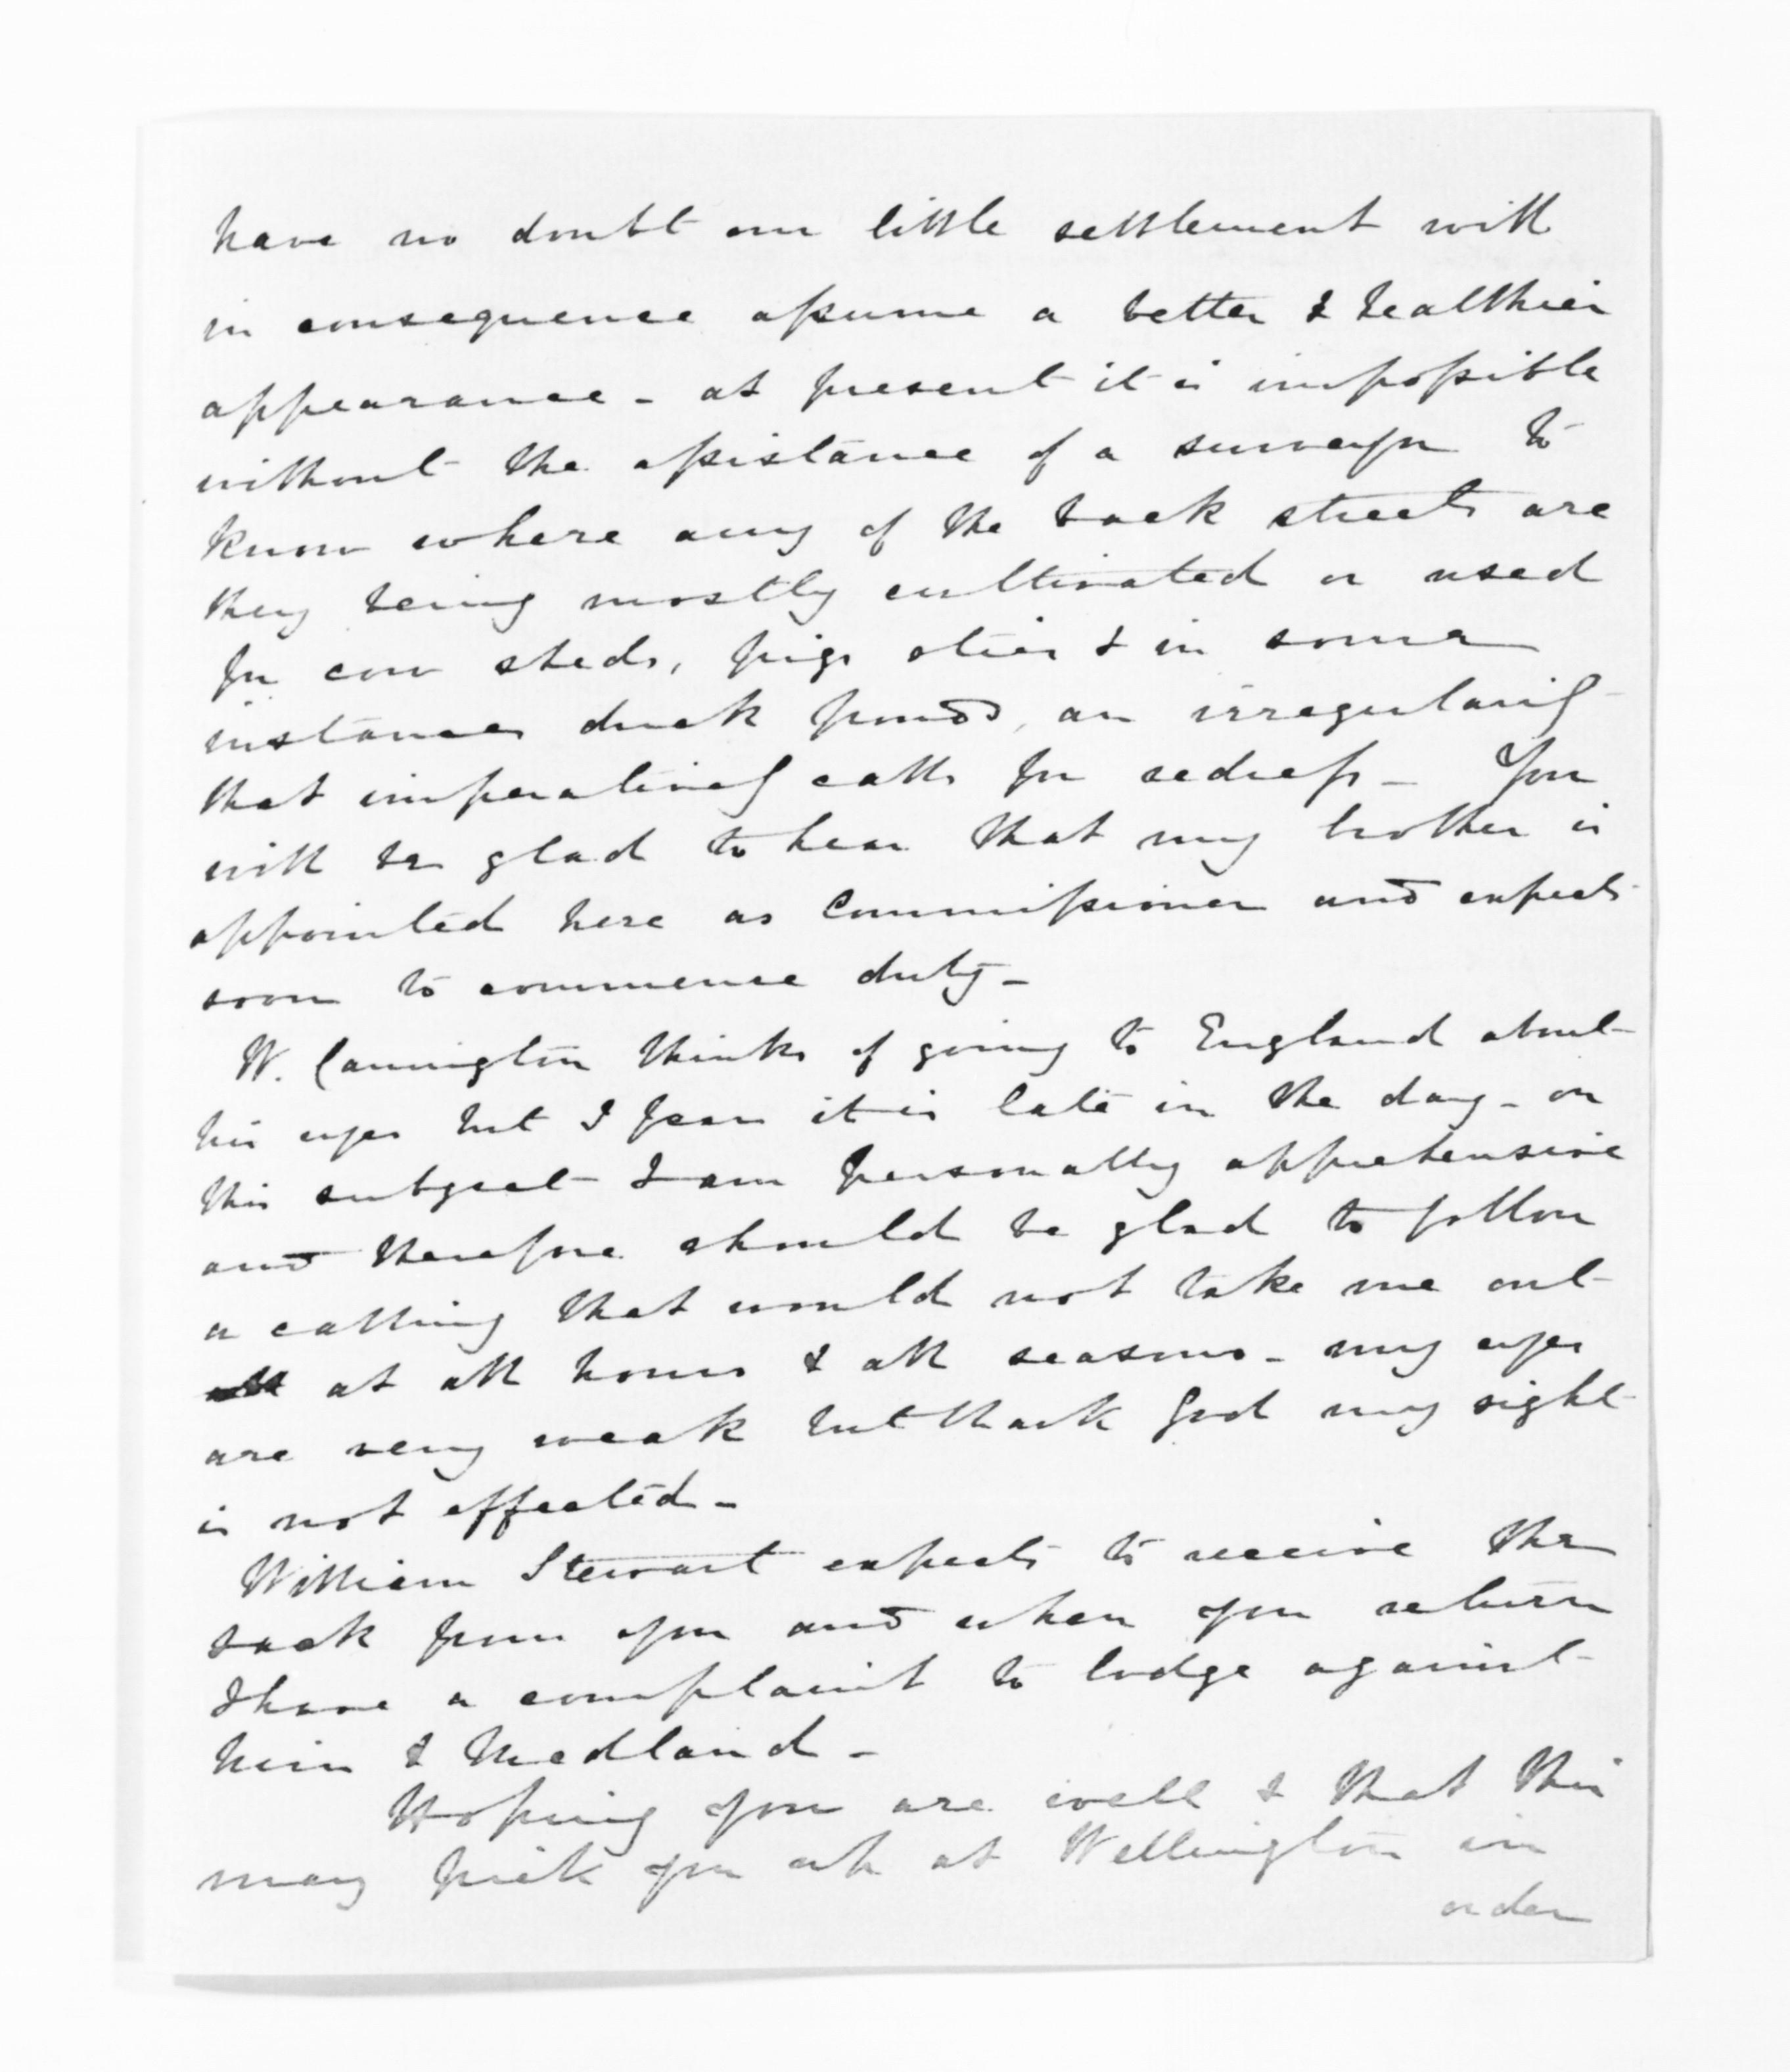 have no doubt our little settlement will
in consequence assume a better & healthier
appearance - at present it is impossible
without the assistance of a surveyor to
know where any of the back streets are
they being mostly cultivated or used
for cow sheds, pigs sties & in some
instances duck ponds, an irregularity
that imperatively calls for redress - You
will be glad to hear that my brother is
appointed here as Commissioner and expects
soon to commence duty -
W. Carrington thinks of going to England about
his eyes but I fear it is late in the day - on
this subject I am personally apprehensive
and therefore should be glad to follow
a calling that would not take me out
at all hours & all seasons - my eyes
are very weak but thank God my sight
is not effected -
William Stewart expects to receive the
sack from you and when you return
I have a complaint to lodge against
him & Medland -
Hoping you are well & that this
may pick you up at Wellington in
order